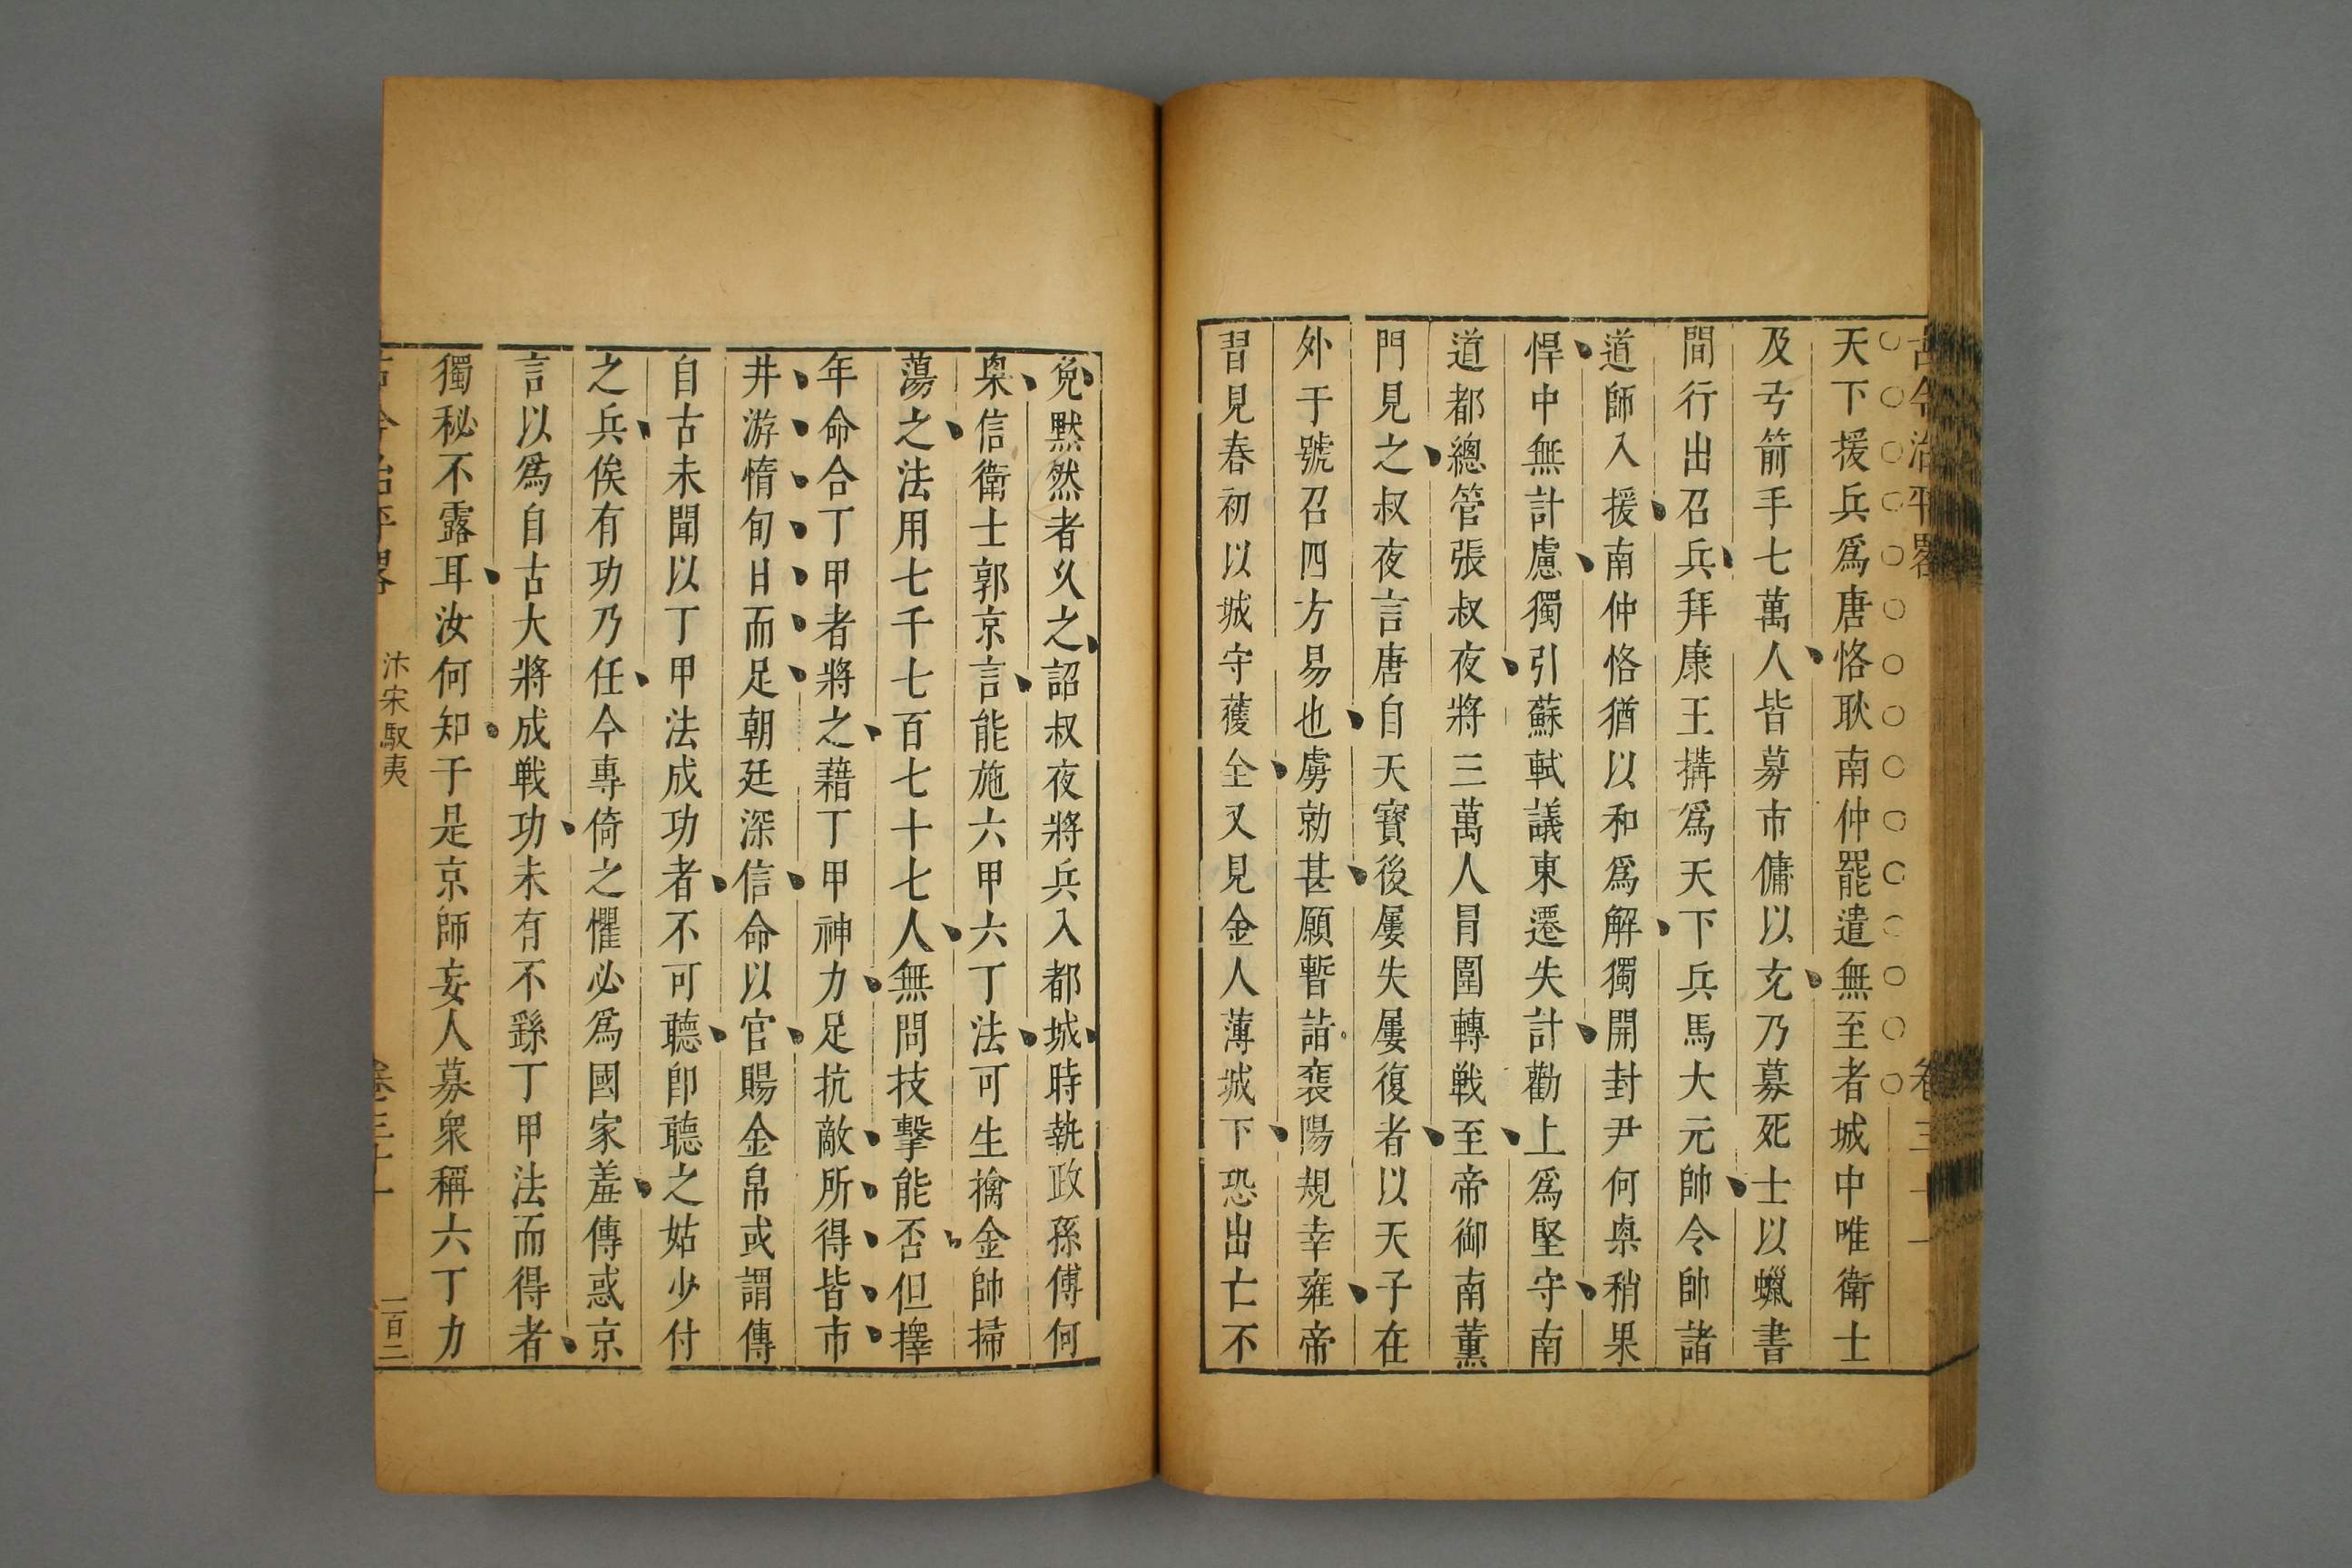 古今治平畧 卷三十一
天下援兵爲唐恪耿南仲罷遣無至者城中唯衛士
及弓箭手七萬人皆募市傭以充乃募死士以蠟書
間行出召兵拜康王搆爲天下兵馬大元帥令帥諸
道師入援南仲恪猶以和爲解獨開封尹何㮚稍果
悍中無計慮獨引蘇軾議東遷失計勸上爲堅守南
道都總管張叔夜將三萬人冒圍轉戰至帝御南薰
門見之叔夜言唐自天寶後屢失屢復者以天子在
外于號召四方易也虜勍甚願暫詣襄陽規幸雍帝
習見春初以城守獲全又見金人薄城下恐出亡不
免默然者久之詔叔夜將兵入都城時執政孫傅何
㮚信衛士郭京言能施六甲六丁法可生擒金帥掃
蕩之法用七千七百七十七人無問技擊能否但擇
年命合丁甲者將之藉丁甲神力足抗敵所得皆市
井游惰旬日而足朝廷深信命以官賜金帛或謂傅
自古未聞以丁甲法成功者不可聽卽聽之姑少付
之兵俟有功乃任今專倚之懼必爲國家羞傅惑京
言以爲自古大將成戰功未有不繇丁甲法而得者
獨秘不露耳汝何知于是京師妄人募衆稱六丁力
古今治平畧 汴宋馭夷 卷三十一 一百二